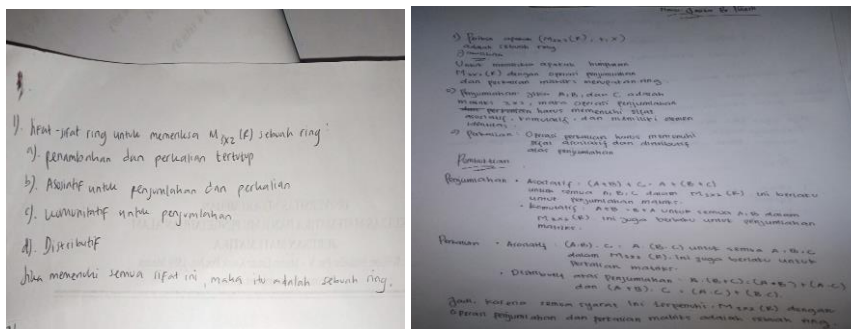 1). Sifat-sifat ring untuk memeriksa M2x2 (R) sebuah ring:
a). penambahan dan perkalian tertutup
b). Asosiatif untuk penjumlahan dan perkalian
c). komunitatif untuk penjumlahan
d). Distributif
Jika memenuhi semua sifat ini, maka itu adalah sebuah ring.
1) Periksa apakah (M2x2 (R), +, x)
adalah sebuah ring
Jawaban
Untuk menentukan apakah himpunan
M2x2 (R) dengan operasi penjumlahan
dan perkalian matriks merupakan ring.
Penjumlahan: jika A, B, dan C adalah
matriks 2x2, maka operasi penjumlahan
harus memenuhi sifat
asosiatif, komutatif, dan memiliki elemen
Perkalian: Operasi perkalian harus memenuhi
sifat asosiatif dan distributif
atas penjumlahan
Pembuktian
Penjumlahan • Asosiatif: (A+B) + C = A + (B+C)
untuk semua A, B, C dalam M2x2 (R) ini berlaku
untuk penjumlahan matriks.
• Komutatif: A+B = B+A untuk semua A, B dalam
M2x2 (R) ini juga berlaku untuk penjumlahan
matriks.
Perkalian • Asosiatif: (A.B).C = A.(B.C) untuk semua A, B, C
dalam M2x2 (R). Ini juga berlaku untuk
perkalian matriks.
• Distributif atas penjumlahan: A.(B+C) = (A+B) + (A.C)
dan (A+B).C = (A.C) + (B.C).
Jadi, karena semua syarat ini terpenuhi, M2x2 (R) dengan
operasi penjumlahan dan perkalian matriks adalah sebuah ring.